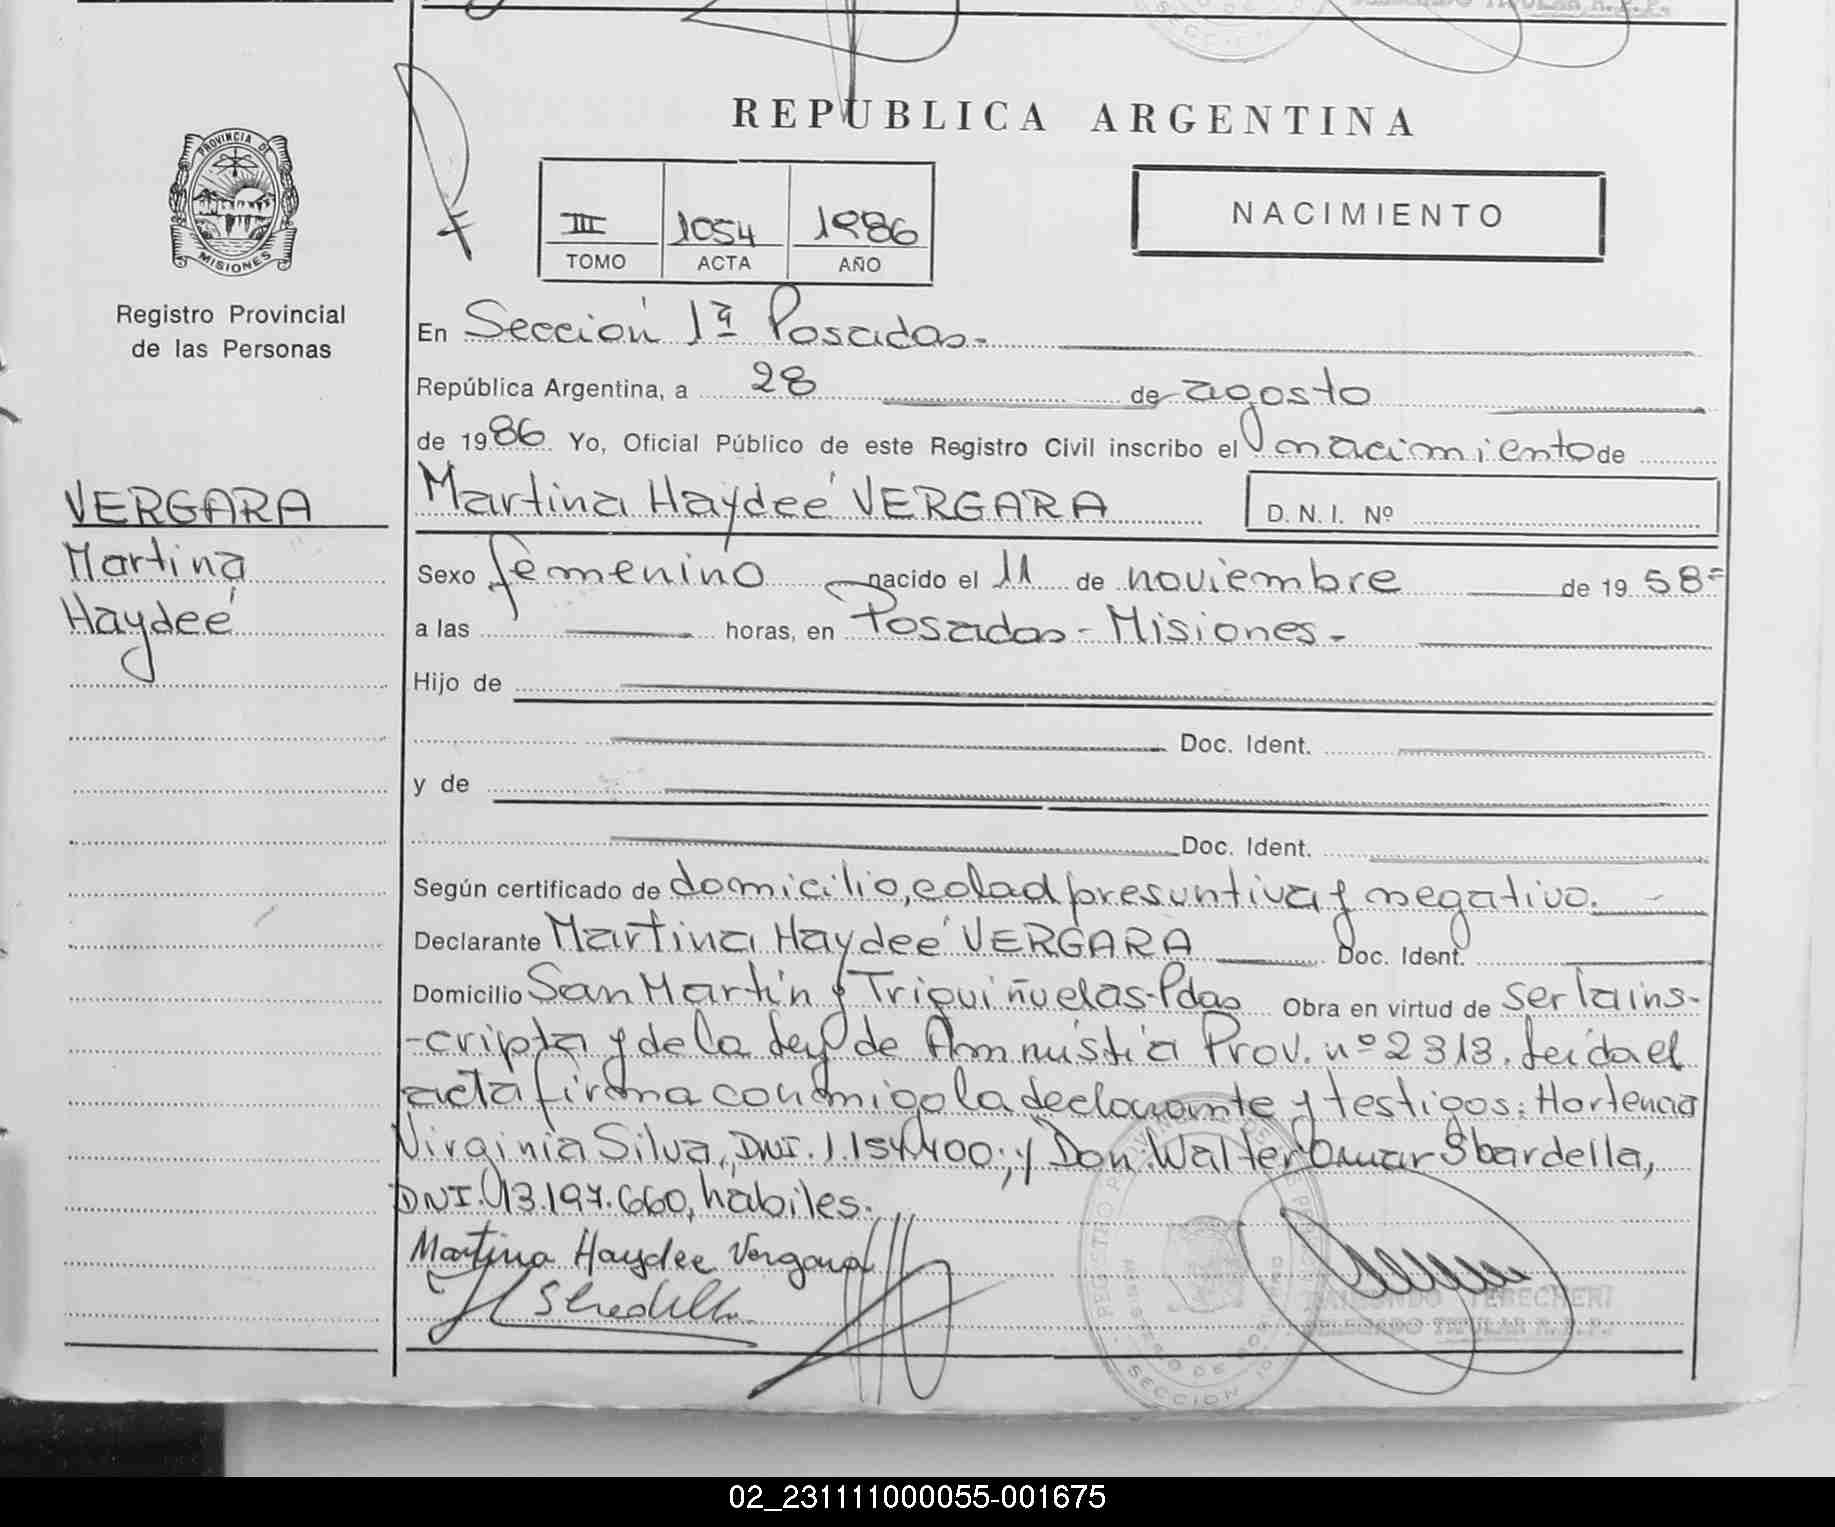 REPUBLICA ARGENTINA
PROVINCIA DE
MISIONES
Registro Provincial
de las Personas
III 1054 1986
TOMO ACTA AÑO
NACIMIENTO
En Sección 1ª Posadas.-
República Argentina, a 28 de agosto
de 1986 Yo, Oficial Público de este Registro Civil inscribo el nacimiento de
VERGARA
Martina
Haydeé
Martina Haydeé VERGARA D.N.I. Nº
Sexo femenino nacido el 11 de noviembre de 1958=
a las horas, en Posadas - Misiones.-
Hijo de
Doc. Ident.
y de
Doc. Ident.
Según certificado de domicilio, edad presuntiva y negativo.
Declarante Martina Haydeé VERGARA Doc. Ident.
Domicilio San Martín y Triquiñuelas-Pdas Obra en virtud de ser la ins-
-cripta y de la Ley de Amnistía Prov. nº 2313. Leída el
acta firma conmigo la declarante y testigos: Hortencia
Virginia Silva, DNI. 1.154.400; y Don Walter Omar Sbardella,
DNI. 13.197.660, hábiles.
Martina Haydee Vergara
RAIMUNDO TEBECHERI
DELEGADO TITULAR R.P.P.
02_231111000055-001675